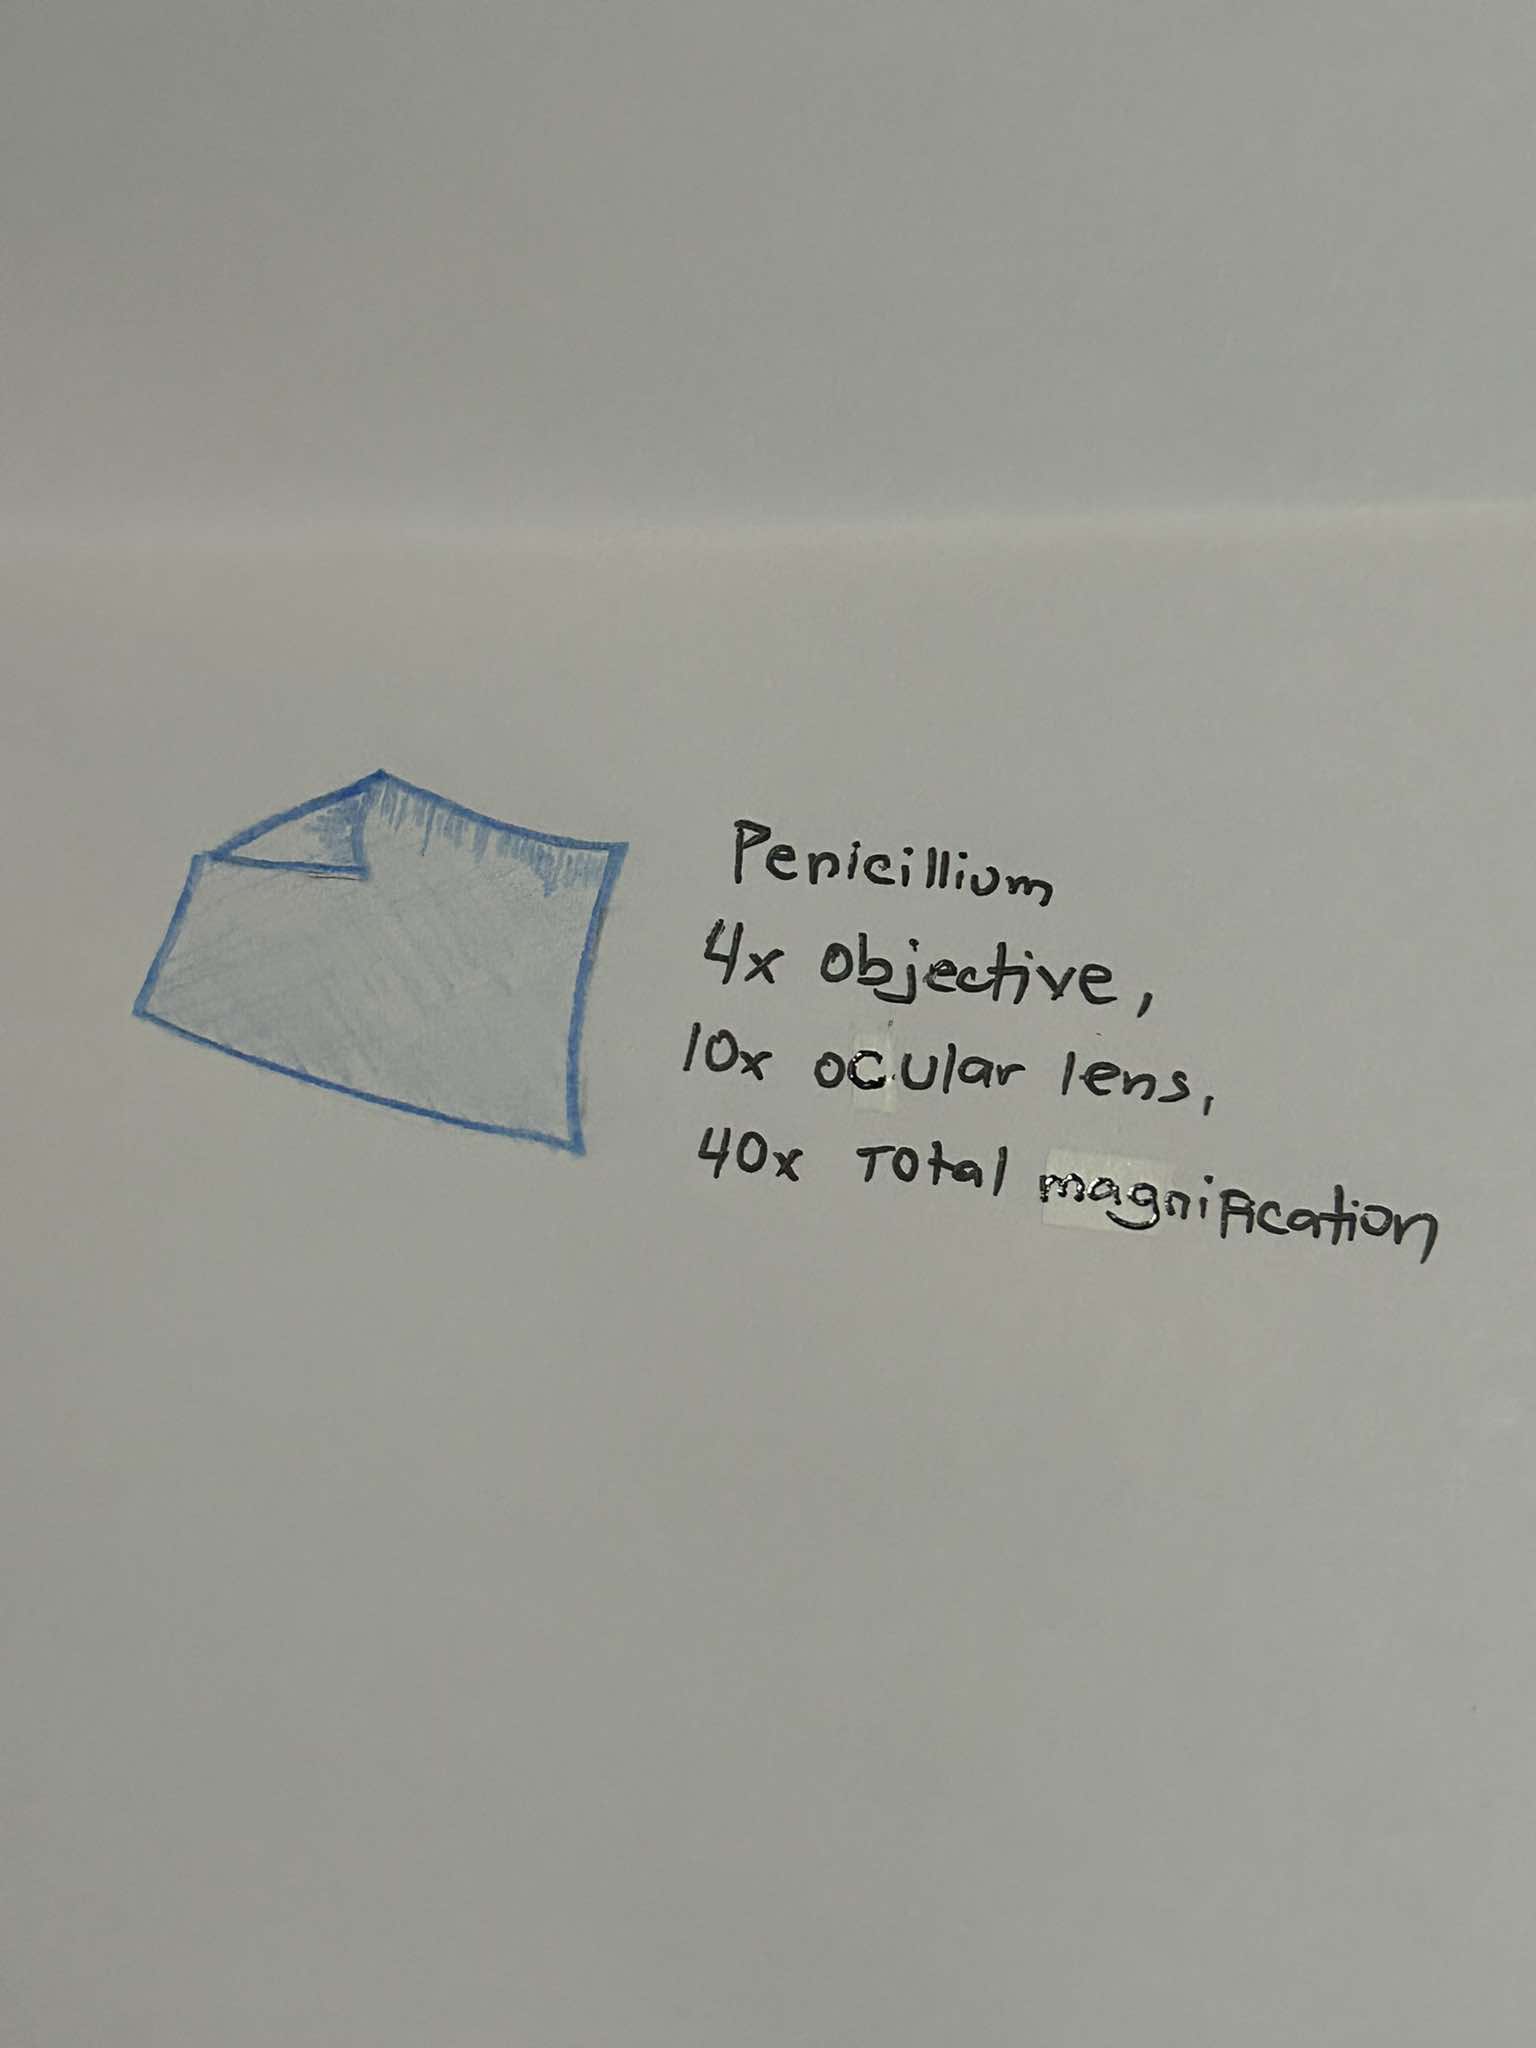 Penicillium
4x objective,
10x ocular lens,
40x Total magnification